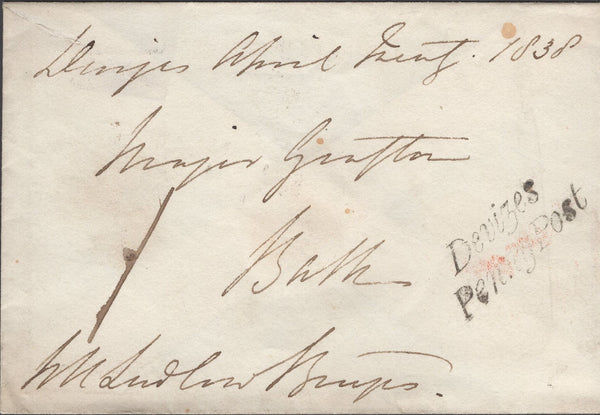 Devizes April Twenty. 1838
Major Grafton
Bath
Devizes
Penny Post
W H Ludlow Bruges.